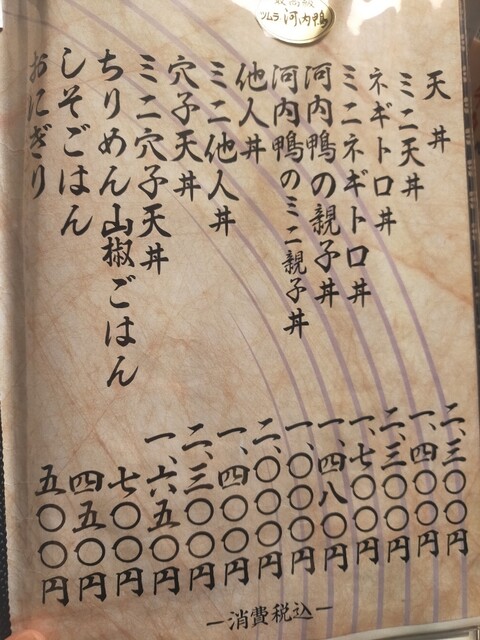 最高級
ツムラ 河内鴨
天丼 二、三〇〇円
ミニ天丼 一、四〇〇円
ネギトロ丼 二、三〇〇円
ミニネギトロ丼 一、七〇〇円
河内鴨の親子丼 一、四八〇円
河内鴨のミニ親子丼 一、〇〇〇円
他人丼 二、〇〇〇円
ミニ他人丼 一、四〇〇円
穴子天丼 二、三〇〇円
ミニ穴子天丼 一、六五〇円
ちりめん山椒ごはん 七〇〇円
しそごはん 四五〇円
おにぎり 五〇〇円
―消費税込―